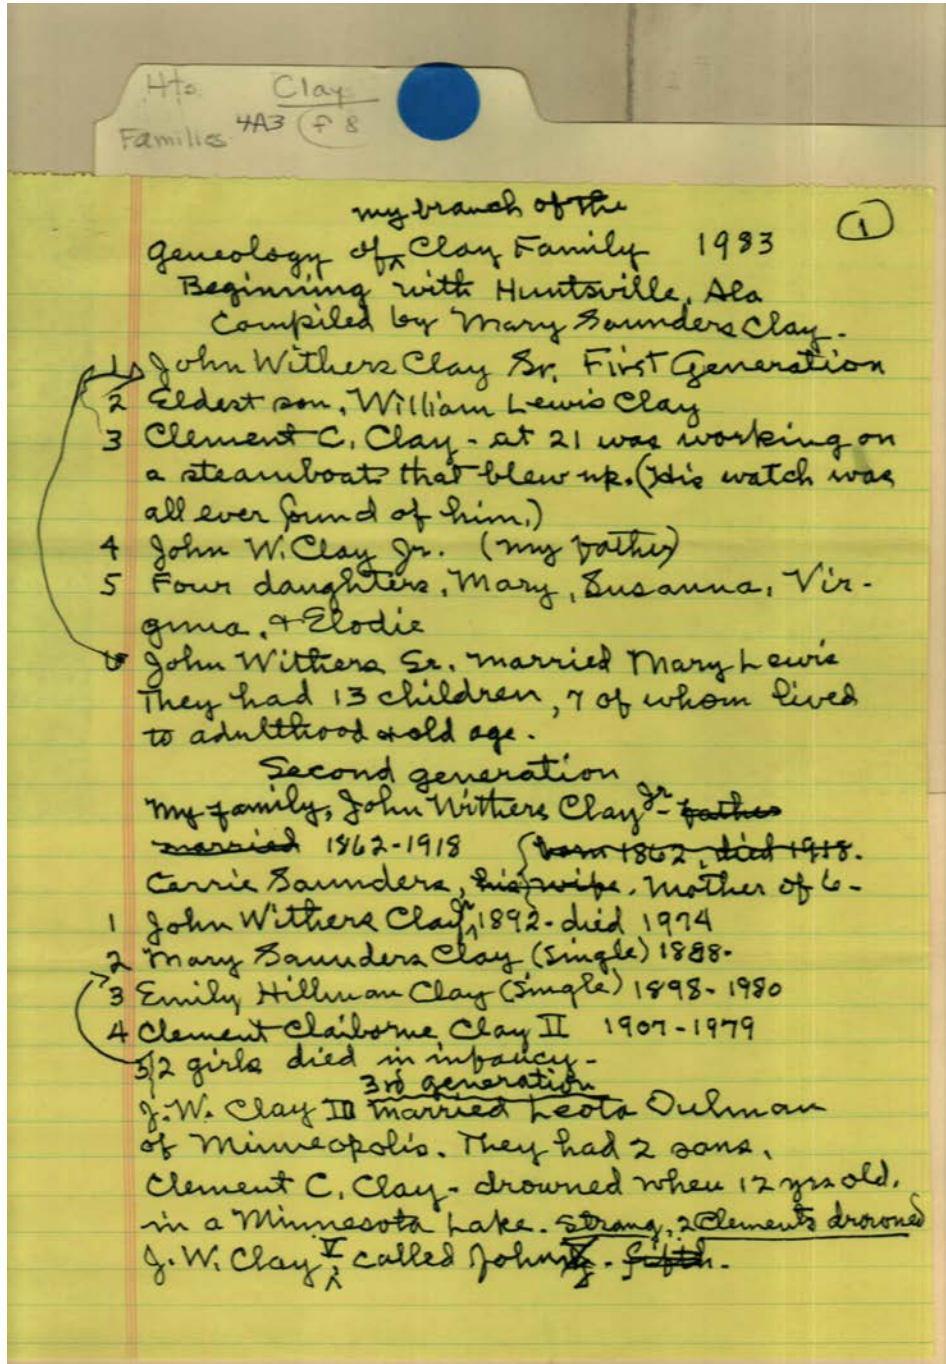 Hts. Clay
Families 4A3 f 8
1
my branch of the
Geneology of ^ Clay Family 1983
Beginning with Huntsville, Ala
Compiled by Mary Saunders Clay.
1 John Withers Clay Sr. First Generation
2 Eldest son, William Lewis Clay
3 Clement C. Clay - at 21 was working on
a steamboat that blew up. (His watch was
all ever found of him.)
4 John W. Clay Jr. (my father)
5 Four daughters, Mary, Susanna, Vir-
ginia, & Elodie
John Withers Sr. married Mary Lewis
They had 13 children, 7 of whom lived
to adulthood & old age.
Second generation
My family, John Withers Clay Jr - father
married 1862-1918 (born 1862, died 1918.
Carrie Saunders, his wife. Mother of 6-
1 John Withers Clay, 1892- died 1974
2 Mary Saunders Clay (Single) 1888-
3 Emily Hillman Clay (Single) 1898-1980
4 Clement Claiborne Clay II 1907-1979
5/2 girls died in infancy-
3rd generation
J.W. Clay III married Leota Oulman
of Minneapolis. They had 2 sons,
Clement C. Clay- drowned when 12 yrs old,
in a Minnesota Lake. Strang, 2 Clements drowned
J.W. Clay V ^ called John. fifth.